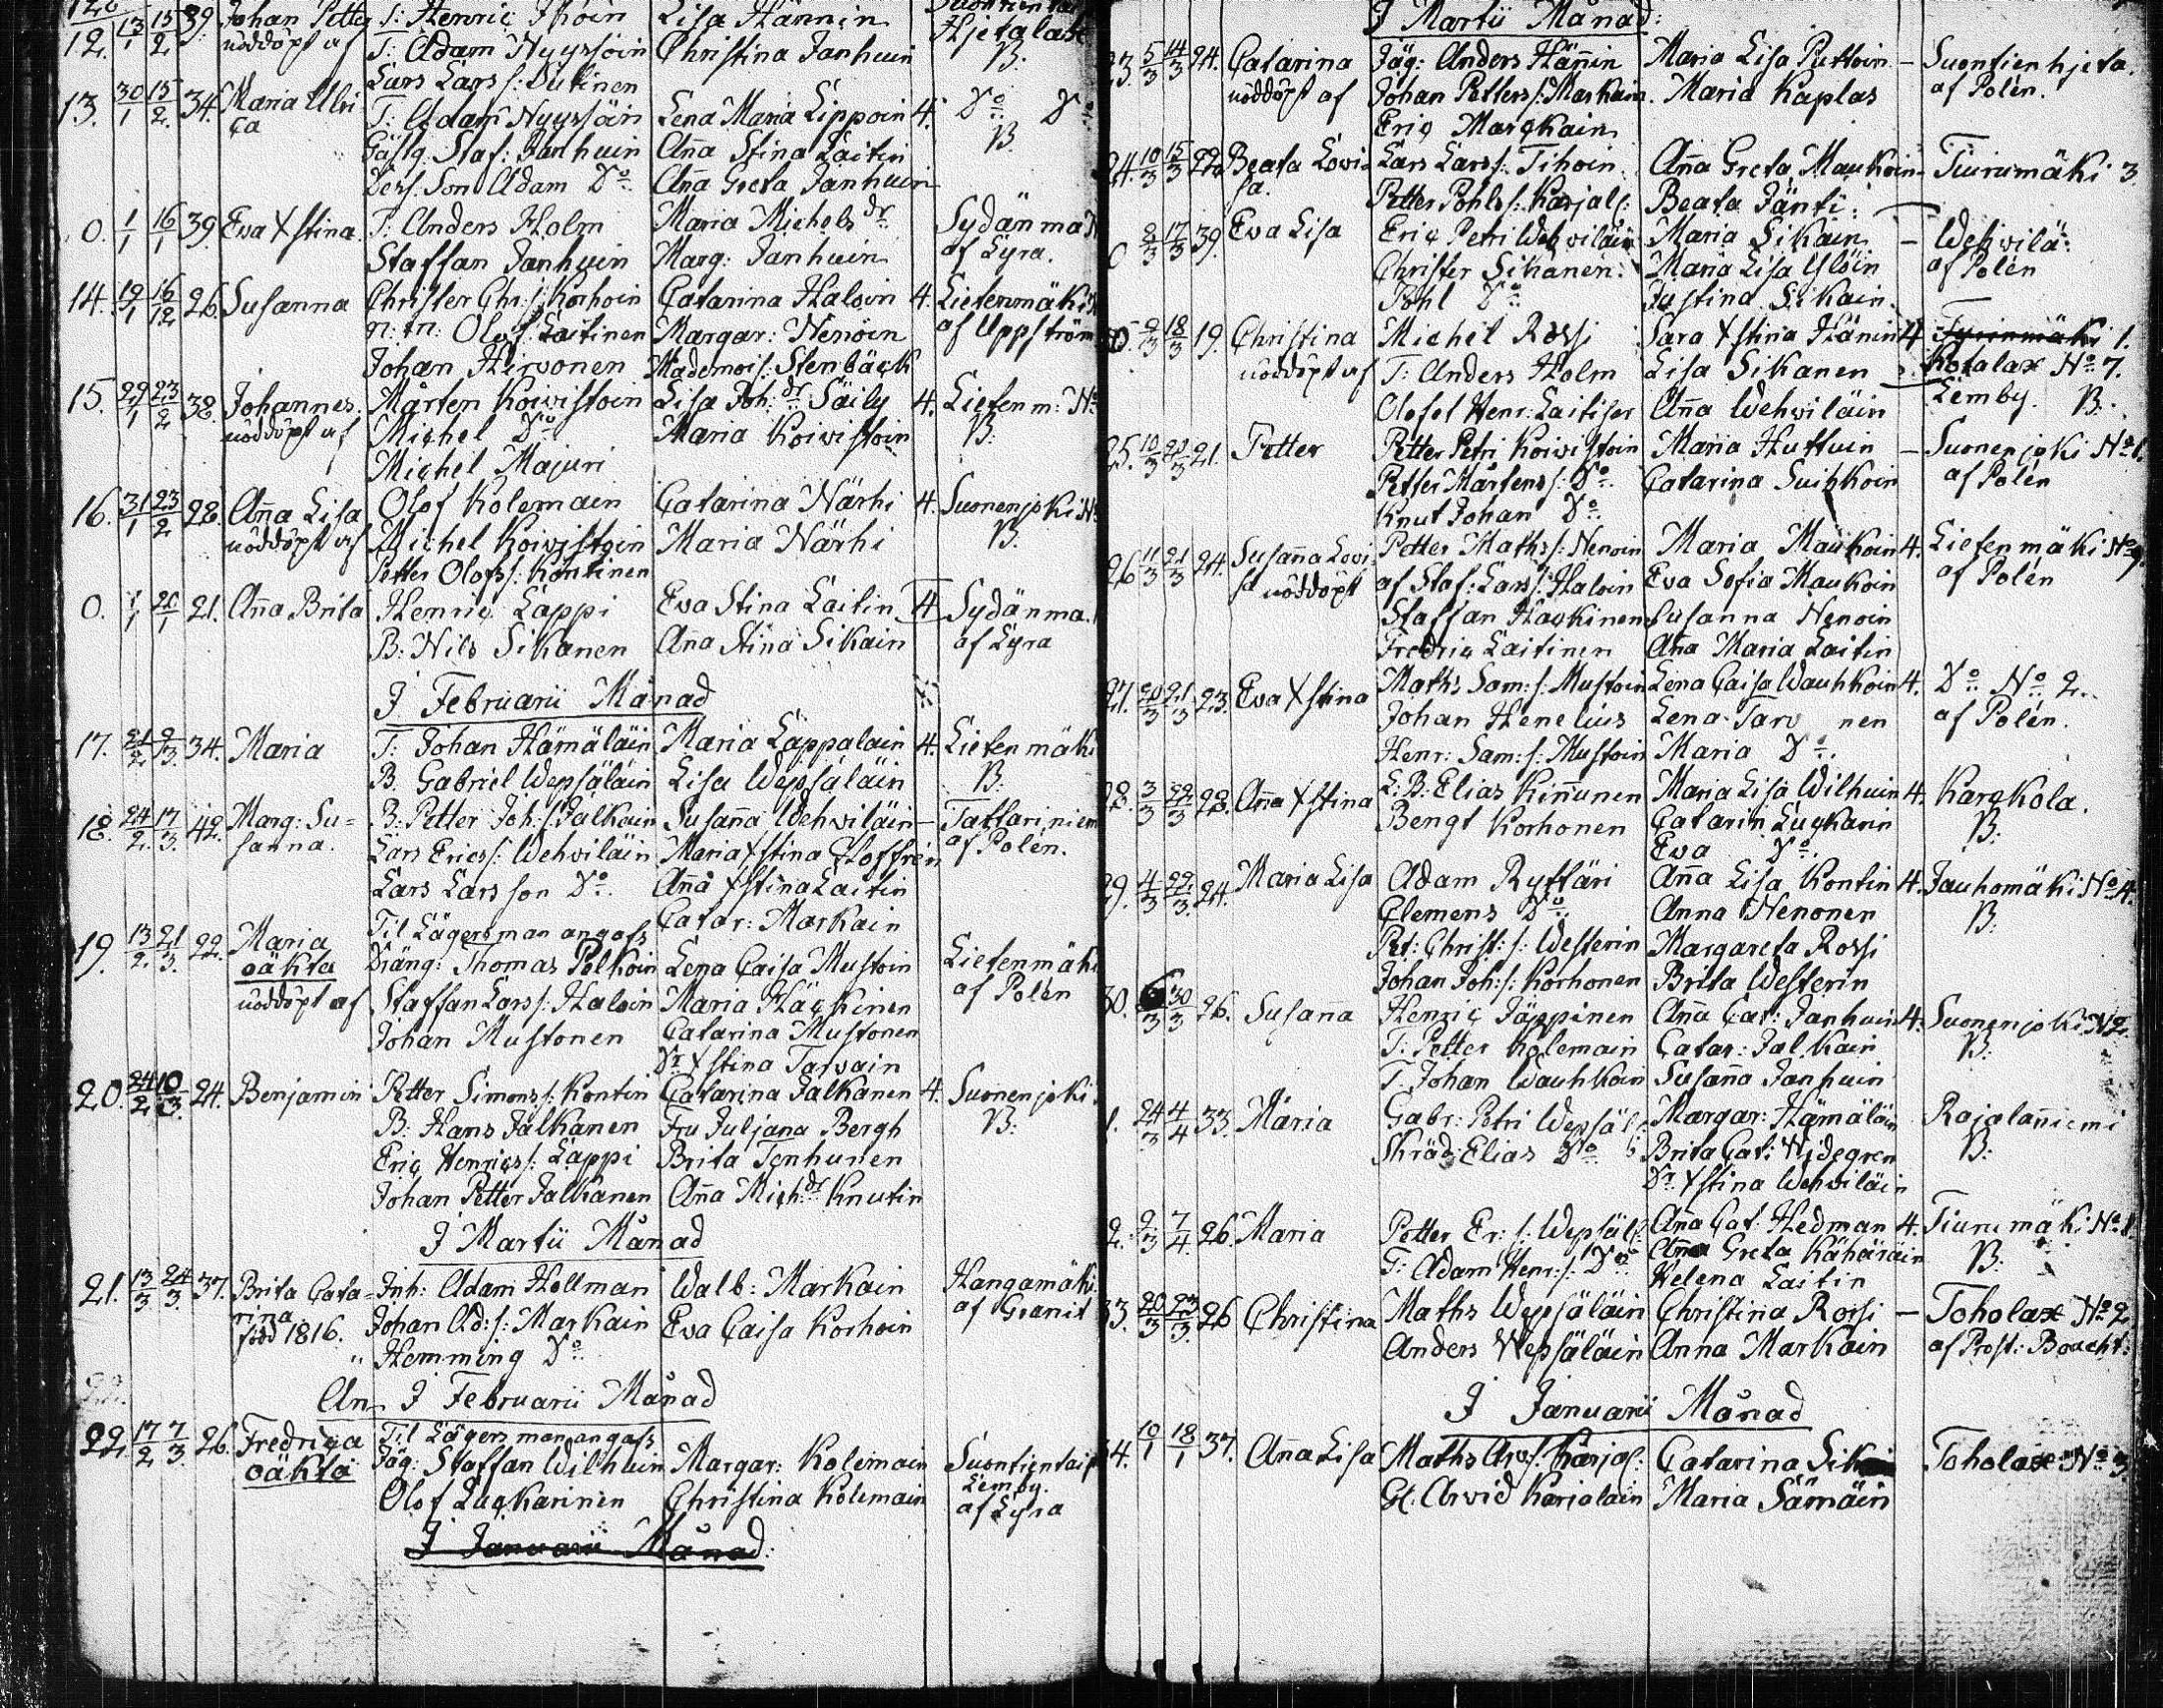 12. 13/1 15/2 39. Johan Petter S: Henric Ihoin Lisa Hännin
nöddöpt af T: Adam Nyyssöin Christina Janhuin Hjetalax
Lars Lars s: Dutinen B.
13. 30/1 15/2. 34. Maria Ulri T: Adam Nyyssöin Lena Maria Lippoin 4. Do Do
ca Gästg. Staf: Janhuin Aña Stina Laitin B.
Ders. Son Adam Do Aña Greta Janhuin
0. 1/1 16/1 39. Ewa Xstina. T: Anders Holm Maria Michels dr Sydänma
Staffan Janhuin Marg: Janhuin af Lyra.
14. 19/1 16/12 26. Susanna Christer Chr: s: Korhoin Catarina Haloin 4. Lietenmäki
n: tn: Olof Laitinen Margar: Nenoin af Uppström
Johan Hirvonen Mademois: Stenbäck
15. 29/1 23/2 38. Johannes. Mårten Koivistoin Lisa Joh: dr Säily 4. Lietenm: No
nöddöpt af Michel Do Maria Koivistoin B:
Michel Majuri
16. 31/1 23/2 28. Aña Lisa Olof Kolemain Catarina Närhi 4. Suonenjoki No
nöddöpt af Michel Koivistoin Maria Närhi B.
Petter Olofs s: Kontinen
0. 1/1 20/1 21. Aña Brita Henric Lappi Ewa Stina Laitin 4 Sydänma.
B: Nils Sikanen Ana Stina Sikain af Lyra
I Februarii Månad
17. 21/2 2/3. 34. Maria T: Johan Hämäläin Maria Lappalain 4. Lietenmäki
B. Gabriel Wepsäläin Lisa Wepsäläin B:
18. 24/2. 17/3. 42. Marg: Su= B: Petter Joh: s: Jalkain Susaña Wehviläin – Tattariniem
sanna. Lars Erics s: Wehviläin Maria Xstina Hoffrén af Polén.
Lars Larsson Do Aña Xstina Laitin
Til Lägersman angafs Catar: Markain
19. 13/2. 21/3. 22. Maria Dräng: Thomas Pelkoin Lena Caisa Mustoin Lietenmäki
oäkta
nöddöpt af Staffan Lars s: Haloin Maria Häckinen af Polén
Johan Mustonen Catarina Mustonen
Dr Xstina Tarvain
20. 24/2. 10/3. 24. Benjamin Petter Simons s: Kontin Catarina Jalkanen 4. Suonenjoki.
B: Hans Jalkanen Fru Juljana Bergh B:
Eric Henrics s: Lappi Brita Tenhunen
Johan Petter Jalkanen Aña Mich: dr Knutin
I Martii Månad
21. 13/3 24/3. 37. Brita Cata= Inh: Adam Hellman Walb: Markain Hangamäki.
rina Johan Ad: s: Markain Ewa Caisa Korhoin af Granit
född 1816. " Hemming Do
An I Februarii Månad
22. 17/2 7/3. 26. Fredrica Til Lägersman angafs
oäkta Jäg: Staffan Wilhuin Margar: Kolemain Suontientaip
Olof Luckarinen Christina Kolemain Lemby.
af Lyra
I Januarii Månad:
I Martii Månad:
23. 5/3 14/3 24. Catarina Jäg: Anders Häñin Maria Lisa Puttoin. – Suontienhjeta.
nöddöpt af Johan Petters s: Markain. Maria Kaplas af Polén.
Eric Marckain
24. 10/3 15/3 22. Beata Lowi= Lars Lars s: Tihoin Aña Greta Maukoin – Tiurumäki 3.
sa. Petter Pohls s: Karjal: Beata Jänti:
0 8/3 17/3 39. Ewa Lisa Eric Petri Wehviläin Maria Sikain – Wehvilä:
Christer Sikanen: Maria Lisa Ylöin af Polén
Pohl Do Justina Sikain.
0. 9/3 18/3 19. Christina Michel Rossi Sara Xstina Hänin 4 Tyrinmäki 1.
nöddöpt af T: Anders Holm Lisa Sikanen Kotalax No 7.
Olofot Henr: Laitiser Aña Wehviläin Lemby. B:
25. 19/3 20/3 21. Petter Petter Petri Koivistoin Maria Huttuin – Suonenjoki No 1.
Petter Mårtens s: Do Catarina Suihkoin af Polén
Knut Johan Do
26 11/3 21/3 24. Susaña Lovi Petter Maths s: Nenoin Maria Maukoin 4. Lietenmäki No 9.
sa nöddöpt af Staf: Lars s: Haloin Ewa Sofia Maukoin af Polén
Staffan Hackinen Susanna Nenoin
Fredric Laitinen Aña Maria Laitin
27. 20/3 21/3 23. Ewa Xstina Maths Sam: s: Mustoin Lena Caisa Wauhkoin 4. Do No 2.
Johan Henelius Lena Tarv nen af Polén.
Henr: Sam: s: Mustoin Maria Do.
28. 3/3 22/3 28. Aña Xstina L: B: Elias Kiñunen Maria Lisa Wilhuin 4. Karckola.
Bengt Korhonen Catarin Luckarin B:
Ewa Do
29. 4/3 22/3. 24. Maria Lisa Adam Ryttäri Aña Lisa Kontin 4. Jauhomäki No 4.
Clemens Do Anna Nenonen B:
Pet: Christ: s: Westerin Margareta Rossi
Johan Joh: s: Korhonen Brita Westerin
30. 6/3 30/3 26. Susaña Henric Jäppinen Aña Cat: Janhuin 4: Suonenjoki N2.
T: Petter Kolemain Catar: Jalkain B:
T. Johan Wauhkoin Susaña Janhuin
1. 24/3 4/4 33. Maria Gabr: Petri Wepsäl: Margar: Hämäläin Rajalañiemi
Skräd: Elias Do Brita Cat: Widegren B:
Dr Xstina Wehviläin
2. 2/3 7/4 26. Maria Petter Er: s: Wepsäl: Aña Cat: Hedman 4. Tiurumäki No 1.
T: Adam Henr: s: Do Aña Greta Kähäräin B:
Helena Laitin
33. 20/3 23/3 26 Christina Maths Wepsäläin Christina Rossi – Toholax No 2
Anders Wepsäläin Anna Markain af Prost: Boucht:
I Januarii Månad
34. 10/1 18/1 37. Aña Lisa Maths Arv: s: Karjal: Catarina Sik Toholax No 3
Gl. Arvid Karjalain Maria Sämäin